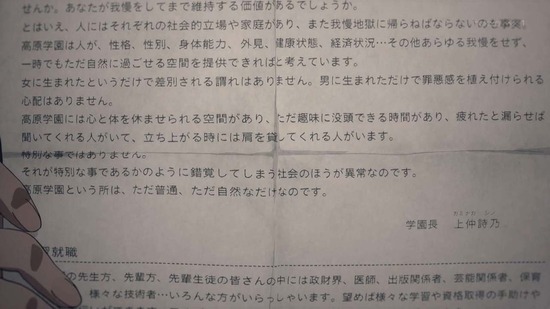 せんか。あなたが我慢をしてまで維持する価値があるでしょうか。
とはいえ、人にはそれぞれの社会的立場や家庭があり、また我慢地獄に帰らねばならないのも事実。
高原学園は人が、性格、性別、身体能力、外見、健康状態、経済状況…その他あらゆる我慢をせず、
一時でもただ自然に過ごせる空間を提供できればと考えています。
女に生まれたというだけで差別される謂れはありません。男に生まれただけで罪悪感を植え付けられる
心配はありません。
高原学園には心と体を休ませられる空間があり、ただ趣味に没頭できる時間があり、疲れたと漏らせば
聞いてくれる人がいて、立ち上がる時には肩を貸してくれる人がいます。
特別な事ではありません。
それが特別な事であるかのように錯覚してしまう社会のほうが異常なのです。
高原学園という所は、ただ普通、ただ自然なだけなのです。
学園長 上仲詩乃
就職
の先生方、先輩方、先輩生徒の皆さんの中には政財界、医師、出版関係者、芸能関係者、保育
様々な技術者…いろんな方がいらっしゃいます。望めば様々な学習や資格取得の手助けや